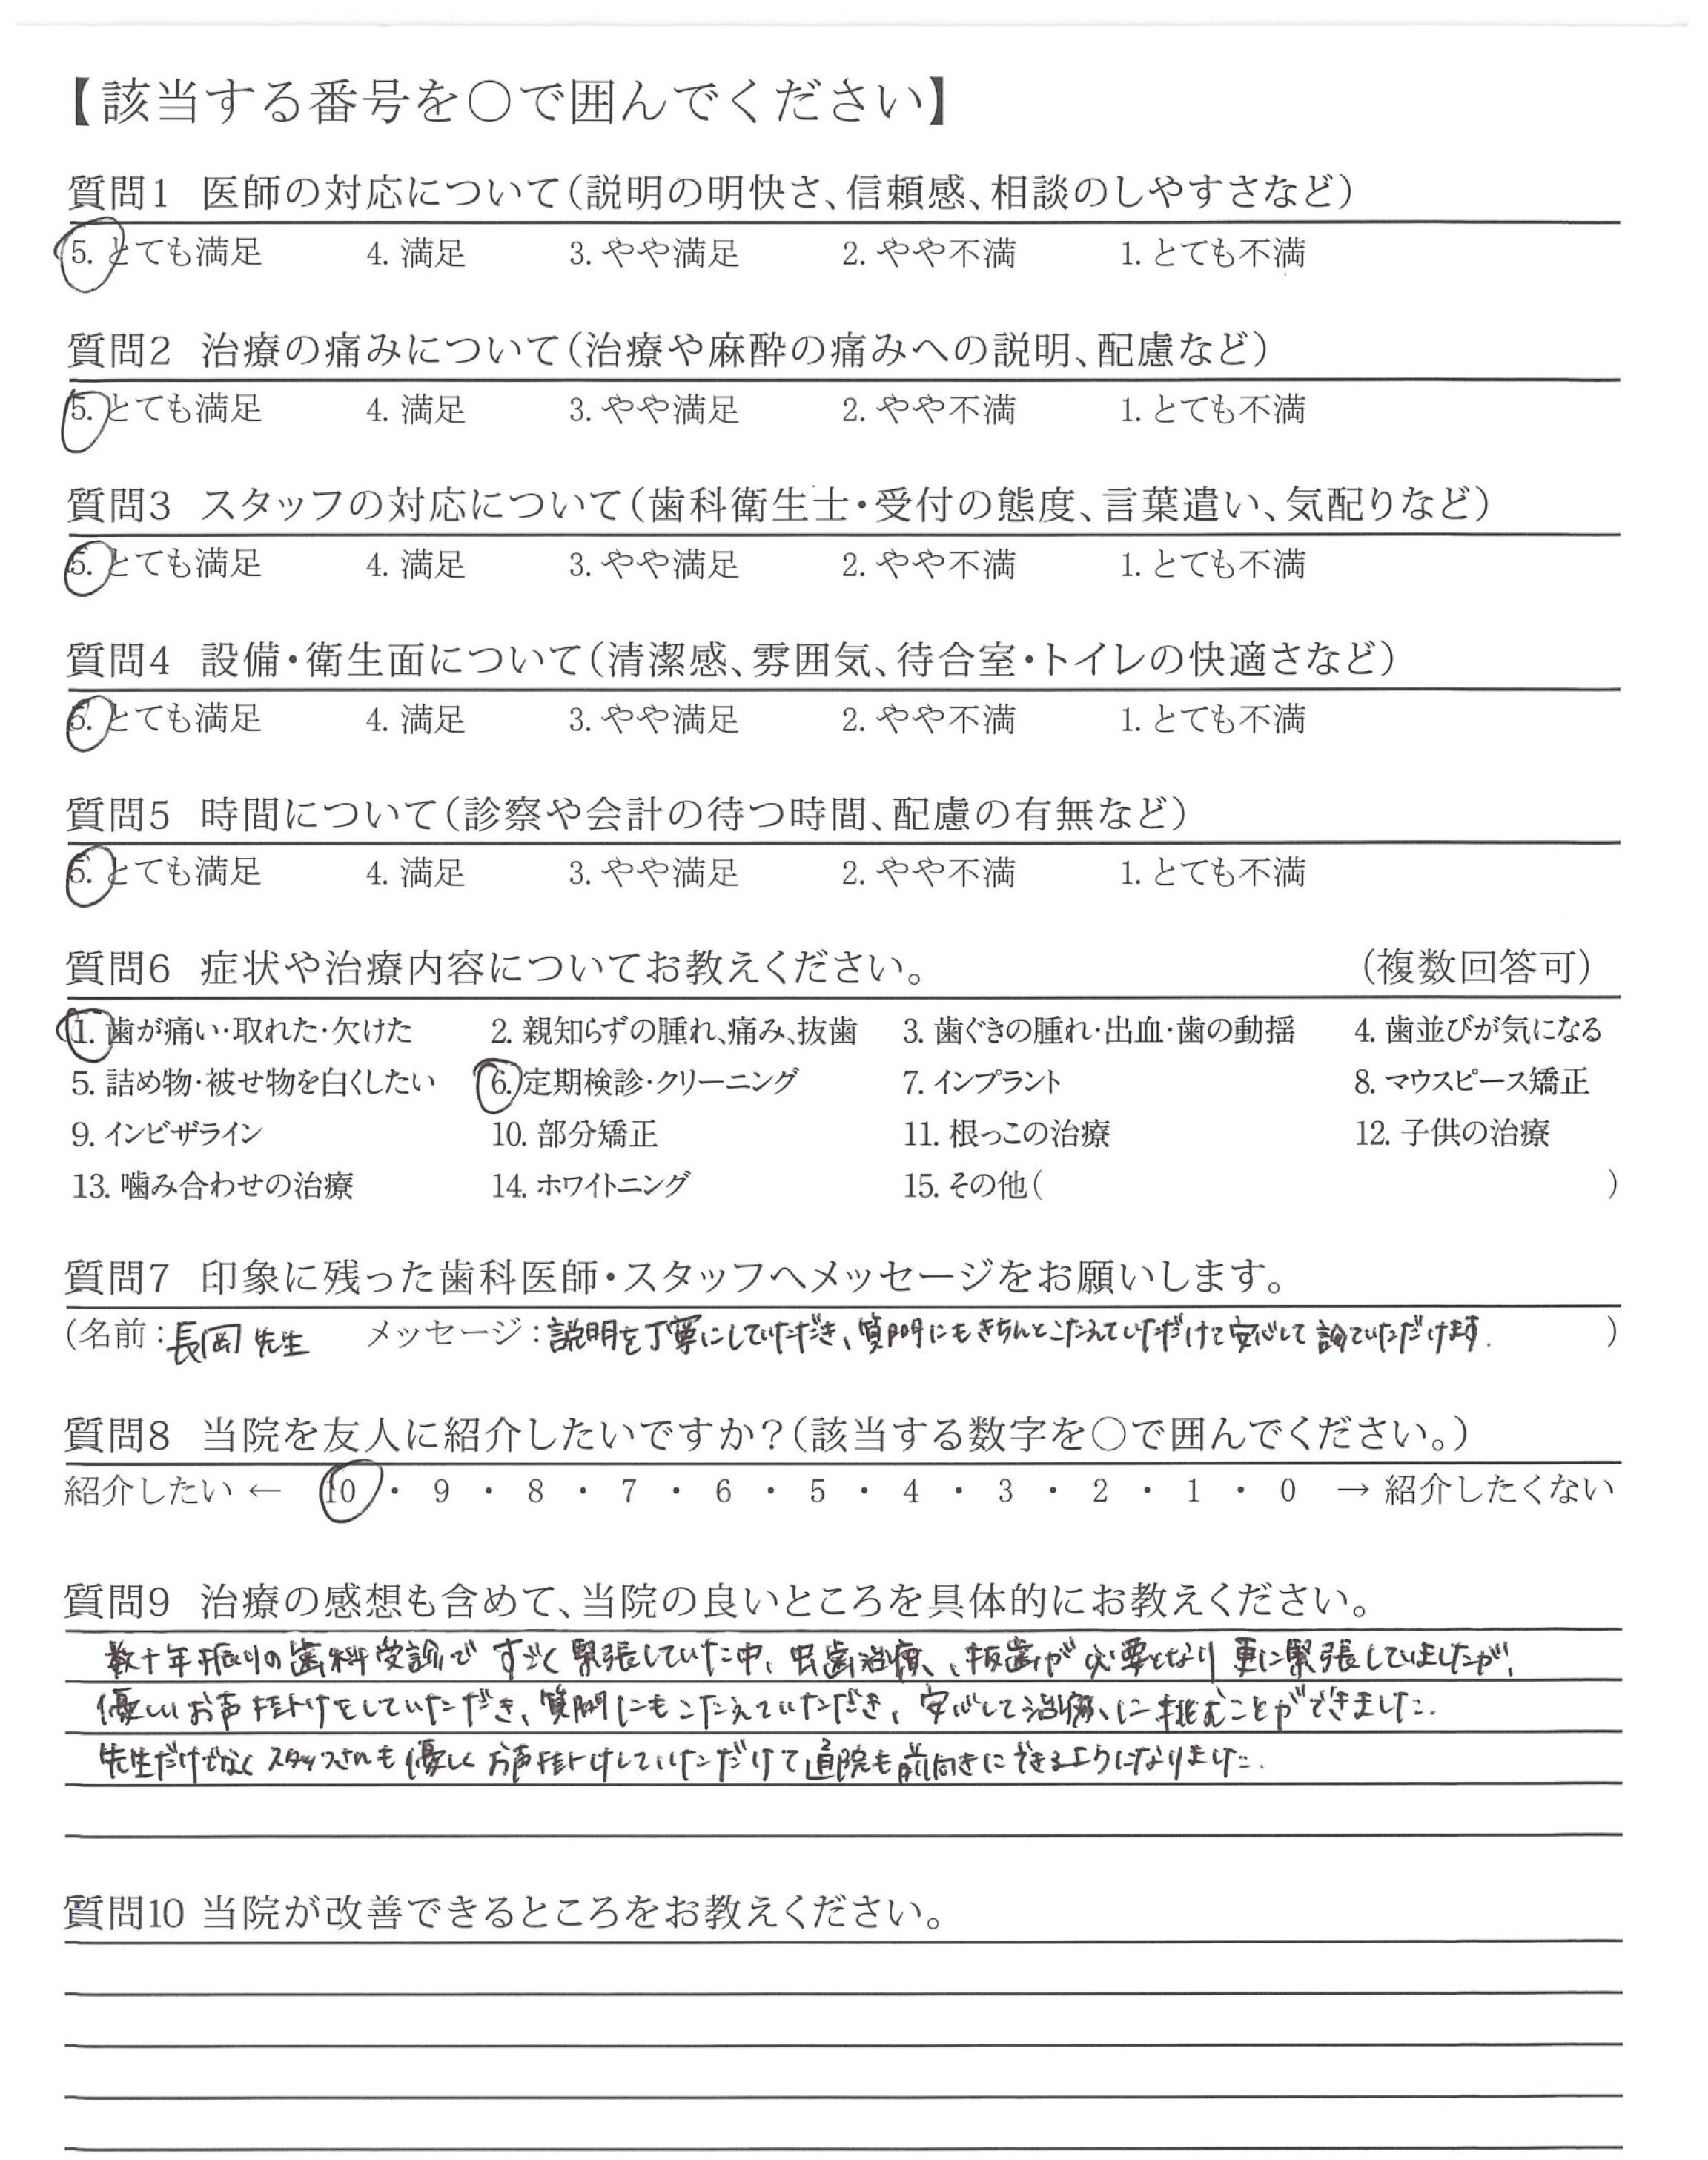 【該当する番号を〇で囲んでください】
質問1 医師の対応について(説明の明快さ、信頼感、相談のしやすさなど)
5. とても満足 4. 満足 3. やや満足 2. やや不満 1. とても不満
質問2 治療の痛みについて(治療や麻酔の痛みへの説明、配慮など)
5. とても満足 4. 満足 3. やや満足 2. やや不満 1. とても不満
質問3 スタッフの対応について(歯科衛生士・受付の態度、言葉遣い、気配りなど)
5. とても満足 4. 満足 3. やや満足 2. やや不満 1. とても不満
質問4 設備・衛生面について(清潔感、雰囲気、待合室・トイレの快適さなど)
5. とても満足 4. 満足 3. やや満足 2. やや不満 1. とても不満
質問5 時間について(診察や会計の待つ時間、配慮の有無など)
5. とても満足 4. 満足 3. やや満足 2. やや不満 1. とても不満
質問6 症状や治療内容についてお教えください。 (複数回答可)
1. 歯が痛い・取れた・欠けた 2. 親知らずの腫れ、痛み、抜歯 3. 歯ぐきの腫れ・出血・歯の動揺 4. 歯並びが気になる
5. 詰め物・被せ物を白くしたい 6. 定期検診・クリーニング 7. インプラント 8. マウスピース矯正
9. インビザライン 10. 部分矯正 11. 根っこの治療 12. 子供の治療
13. 噛み合わせの治療 14. ホワイトニング 15. その他( )
質問7 印象に残った歯科医師・スタッフへメッセージをお願いします。
(名前:長岡 先生 メッセージ:説明を丁寧にしていただき、質問にもきちんとこたえていただけて安心して診ていただけます. )
質問8 当院を友人に紹介したいですか?(該当する数字を〇で囲んでください。)
紹介したい ← 10 ・ 9 ・ 8 ・ 7 ・ 6 ・ 5 ・ 4 ・ 3 ・ 2 ・ 1 ・ 0 → 紹介したくない
質問9 治療の感想も含めて、当院の良いところを具体的にお教えください。
数十年振りの歯科受診で すごく緊張していた中、虫歯治療、抜歯が必要となり 更に緊張していましたが、
優しいお声掛けをしていただき、質問にもこたえていただき、安心して治療に挑むことができました.
先生だけでなく スタッフさんも優しくお声掛けしていただけて通院も前向きにできるようになりました.
質問10 当院が改善できるところをお教えください。